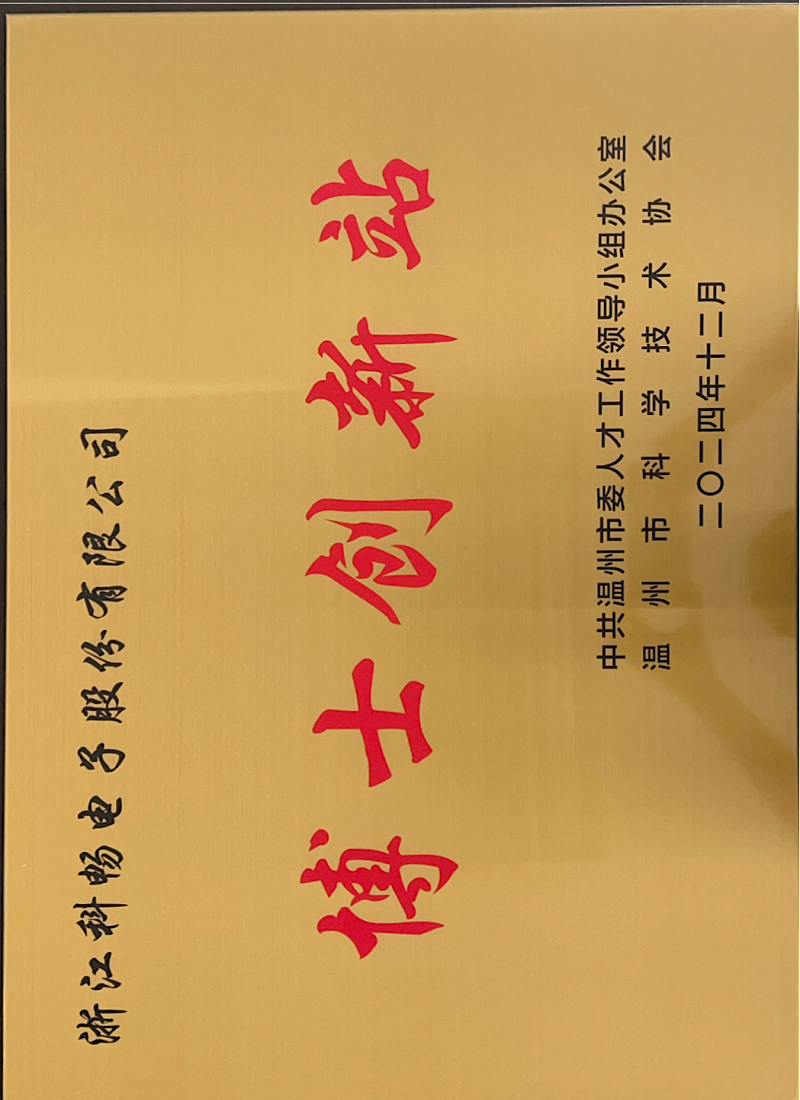 浙江科畅电子股份有限公司
博士创新站
中共温州市委人才工作领导小组办公室
温州市科学技术协会
二〇二四年十二月